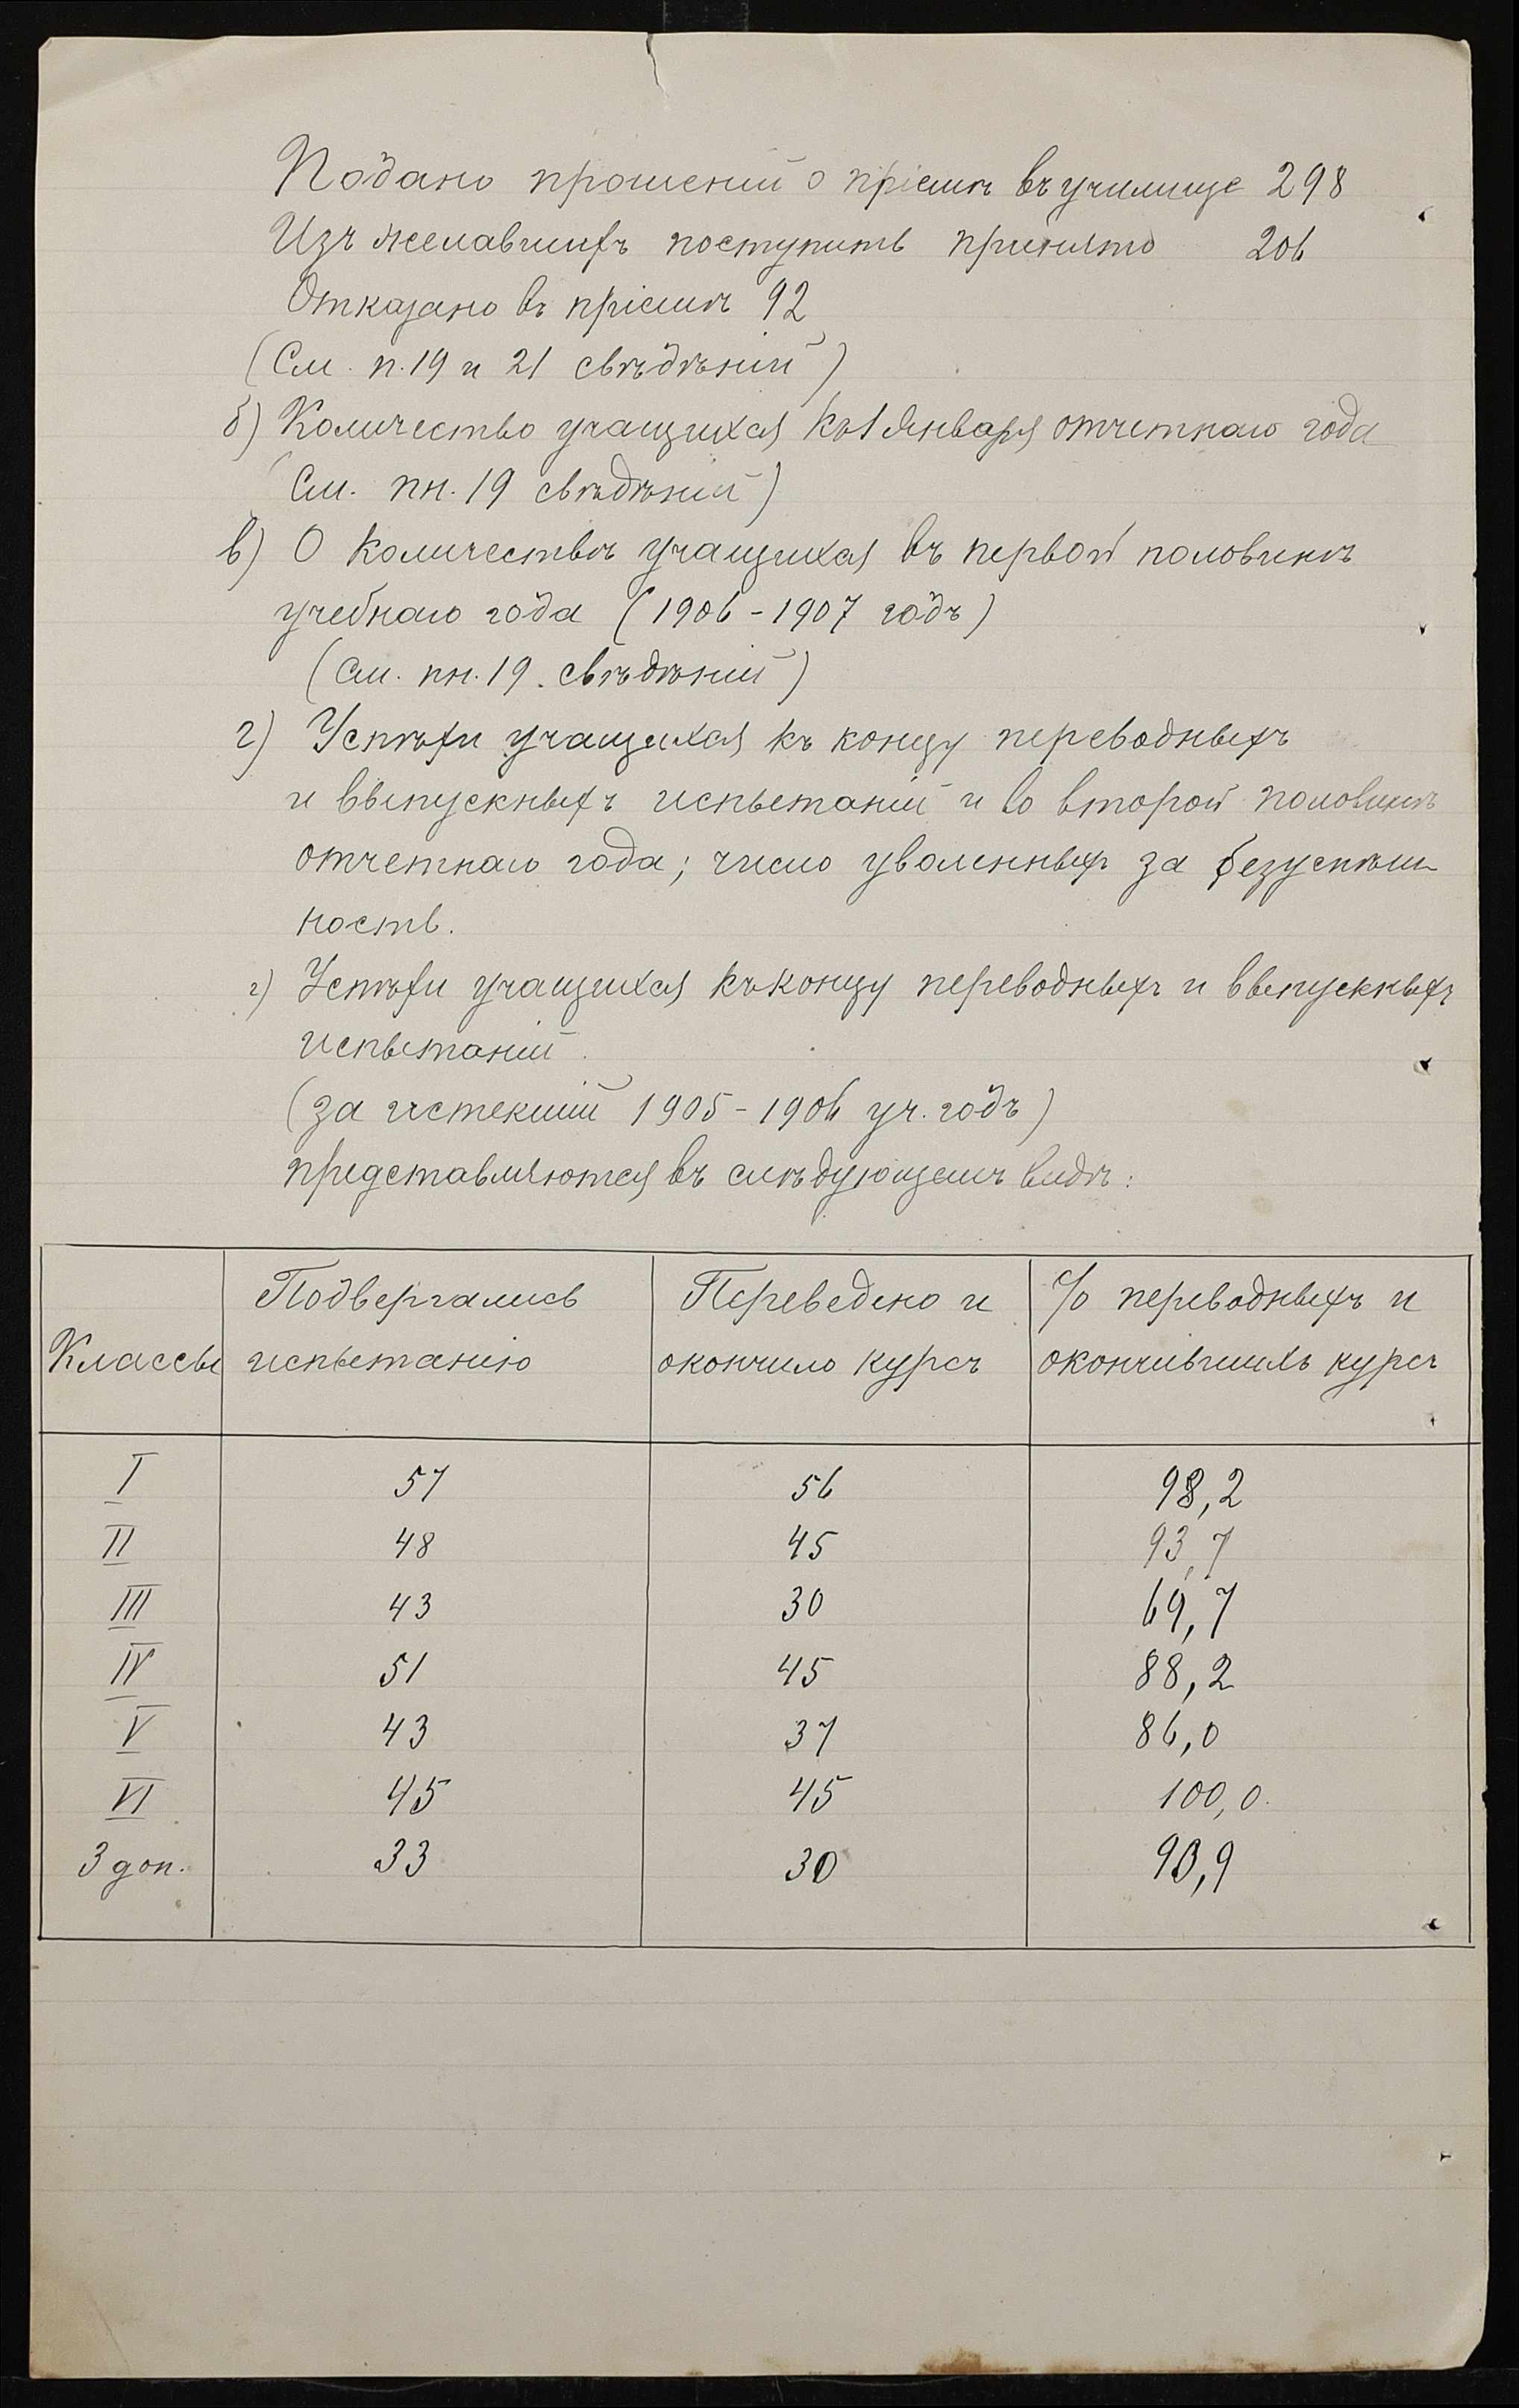 Подано прошений о пріемѣ въ училище 298
Изъ желавшихъ поступить принято 206
Отказано въ пріемѣ 92
(См. п. 19 и 21 свѣдѣній)
б) Количество учащихся къ 1 Января отчетнаго года
(См. пн. 19 свѣдѣній)
в) О количествѣ учащихся въ первой половинѣ
учебнаго года (1906-1907 годъ)
(См. пн. 19. свѣдѣній)
г) Успѣхи учащихся къ концу переводныхъ
и выпускныхъ испытаній и во второй половинѣ
отчетнаго года; число уволенныхъ за безуспѣш
ность.
г) Успѣхи учащихся къ концу переводныхъ и выпускныхъ
испытаній.
(за истекшій 1905-1906 уч. годъ)
представляются въ слѣдующемъ видѣ:
Классы | Подвергались испытанію | Переведено и окончило курсъ | % переводныхъ и окончившихъ курсъ
I 57 56 98,2
II 48 45 93,7
III 43 30 69,7
IV 51 45 88,2
V 43 37 86,0
VI 45 45 100,0.
3 доп. 33 30 90,9